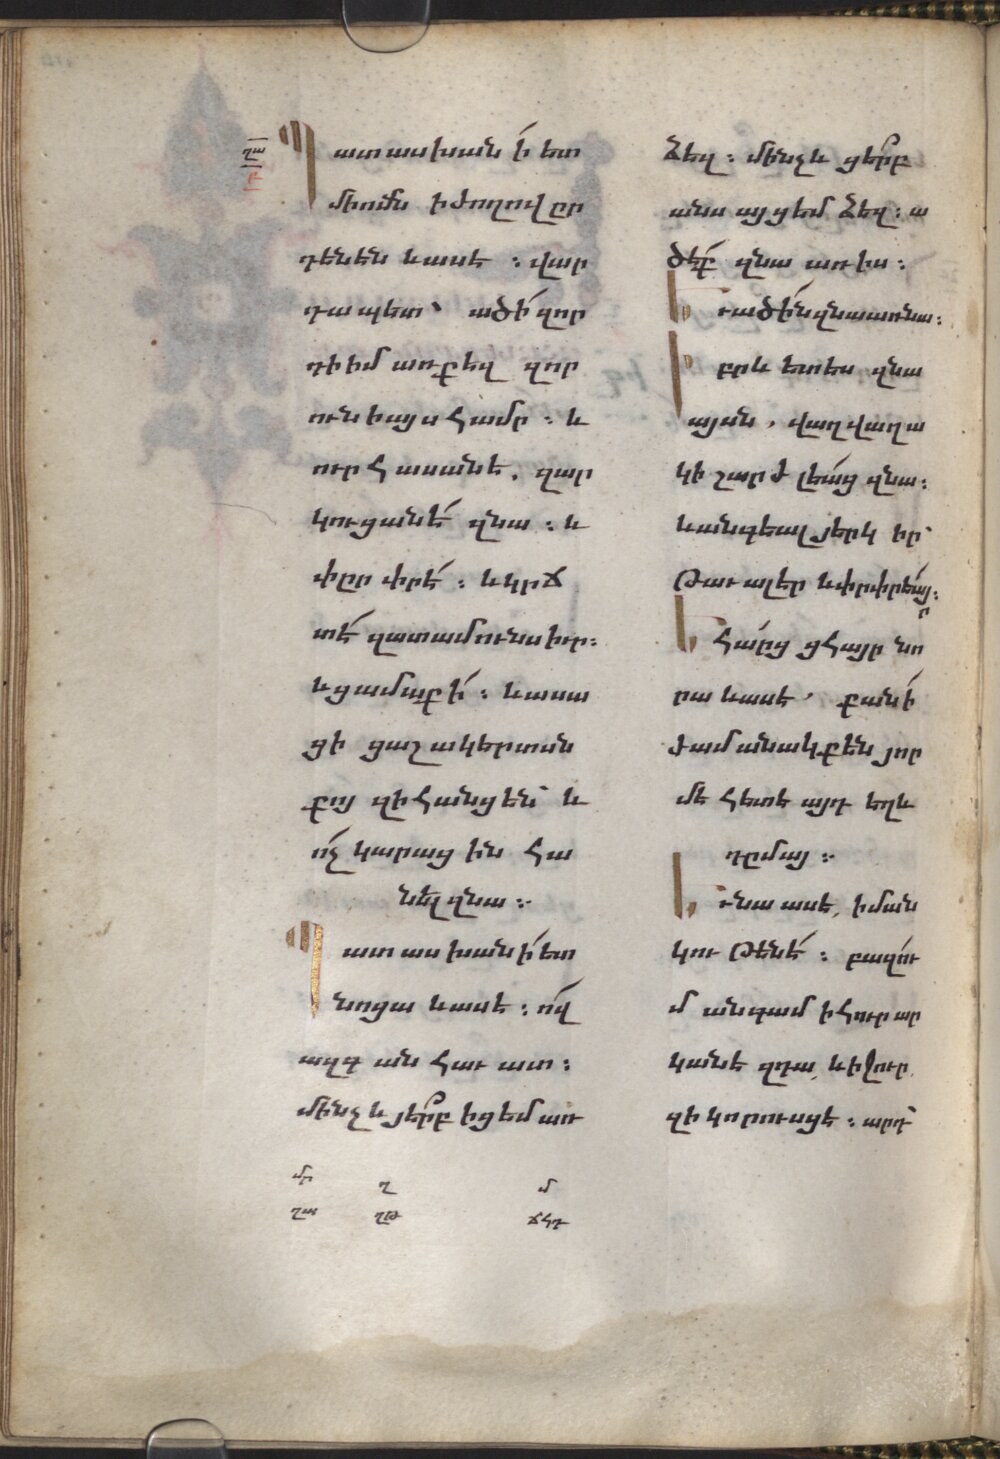 ղա
բ
Պատասխանի՛ ետ
միումն ի ժողովըր
դենէն և ասէ ։ վար
դապետ՝ ածի՛ զոր
դի իմ առ քեզ զոր
ունի այս համր ։ և
ուր հասանէ, զար
կուցանէ՛ զնա ։ և
փըրփրէ՛ ։ և կրճ
տէ՛ զատամունս իւր։
և ցամաքի՛ ։ և ասա
ցի ցաշակերտսն
քոյ զի հանցեն՝ և
ո՛չ կարացին հա
նել զնա ։
Պատասխանի՛ ետ
նոցա և ասէ ։ ո՛վ
ազգ անհաւատ ։
մինչև յե՞րբ իցեմ առ
ձեզ ։ մինչև ցե՞րբ
անսայցեմ ձեզ ։ ա
ծէ՛ք զնա առ իս ։
Եւ ածի՛ն զնա առ նա։
Իբրև ետես զնա
այսն, վաղվաղա
կի շարժլեա՛ց զնա։
և անգեալ յերկիր՝
թաւալէր և փրփրեա՛յր։
Եհա՛րց ցհայր նո
րա և ասէ, քանի՛
ժամանակ քեն յոր
մէ հետէ այդ եղև
դըմայ ։
Եւ նա ասէ, ի ման
կութենէ՛ ։ բազու՛
մ անգամ ի հուր ար
կանէ զդա, և ի ջուր
զի կորուսցէ ։ արդ՝
մր ղ մ
ղա ղթ ճհդ